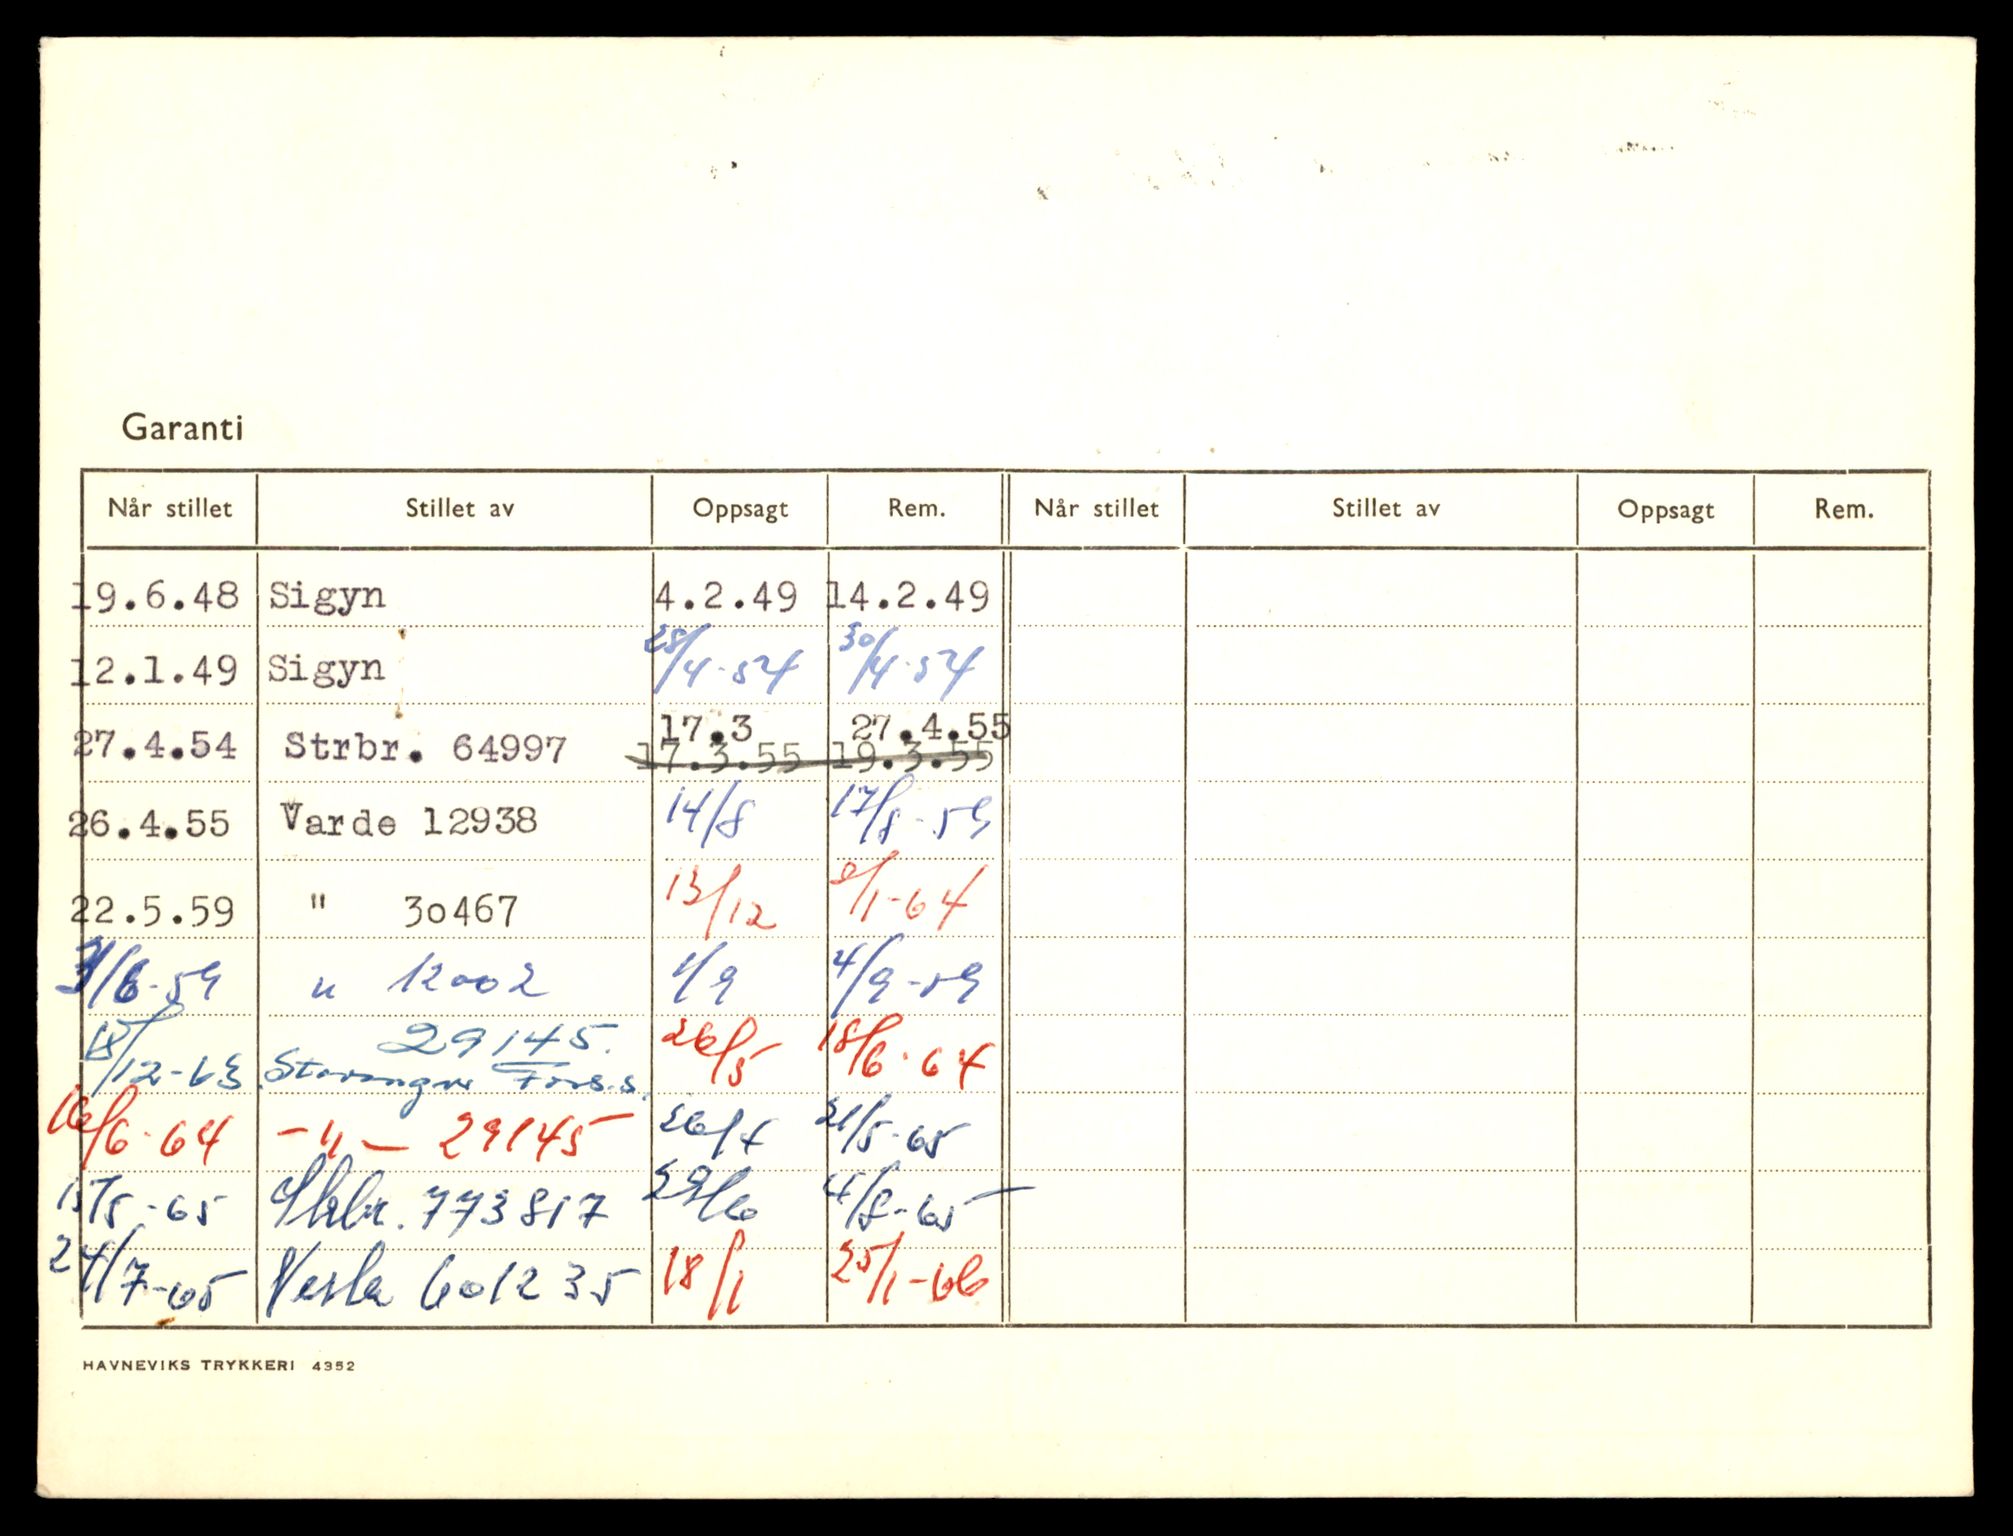 Garanti
Når stillet Stillet av Oppsagt Rem. Når stillet Stillet av Oppsagt Rem.
19.6.48 Sigyn 4.2.49 14.2.49
12.1.49 Sigyn 28/4-54 30/4-54
17.3 27.4.55
27.4.54 Strbr. 64997 17.3.55 19.3.55
26.4.55 Varde 12938 14/8 17/8-59
22.5.59 " 30467 13/12 /1-64
/6-59 " 12002 1/9 4/9-59
29145.
18/12-63 Stavanger Fors.s. 26/5 18/6-64
16/6-64 -"- 29145 26/4 21/5-65
15/5-65 Skbr. 773817 29/6 4/8-65
24/7-65 Vesla 601235 18/1 25/1-66
HAVNEVIKS TRYKKERI 4352